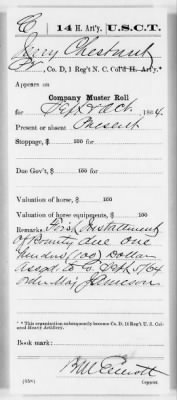 C | 14 H. Art'y. | U.S.C.T.
Jery Chestnut
, Co. D, 1 Reg't N. C. Col'd H. Art'y.*
Appears on
Company Muster Roll
for Sept & Oct, 1864.
Present or absent Present
Stoppage, $ 100 for
Due Gov't, $ 100 for
Valuation of horse, $ 100
Valuation of horse equipments, $ 100
Remarks: First Installment
of Bounty due one
hundred (100) Dollars
to Co. Sept 5/64
order Maj Jameson
* This organization subsequently became Co. D, 14 Reg't U. S. Col-
ored Heavy Artillery.
Book mark:
(358) Copyist.